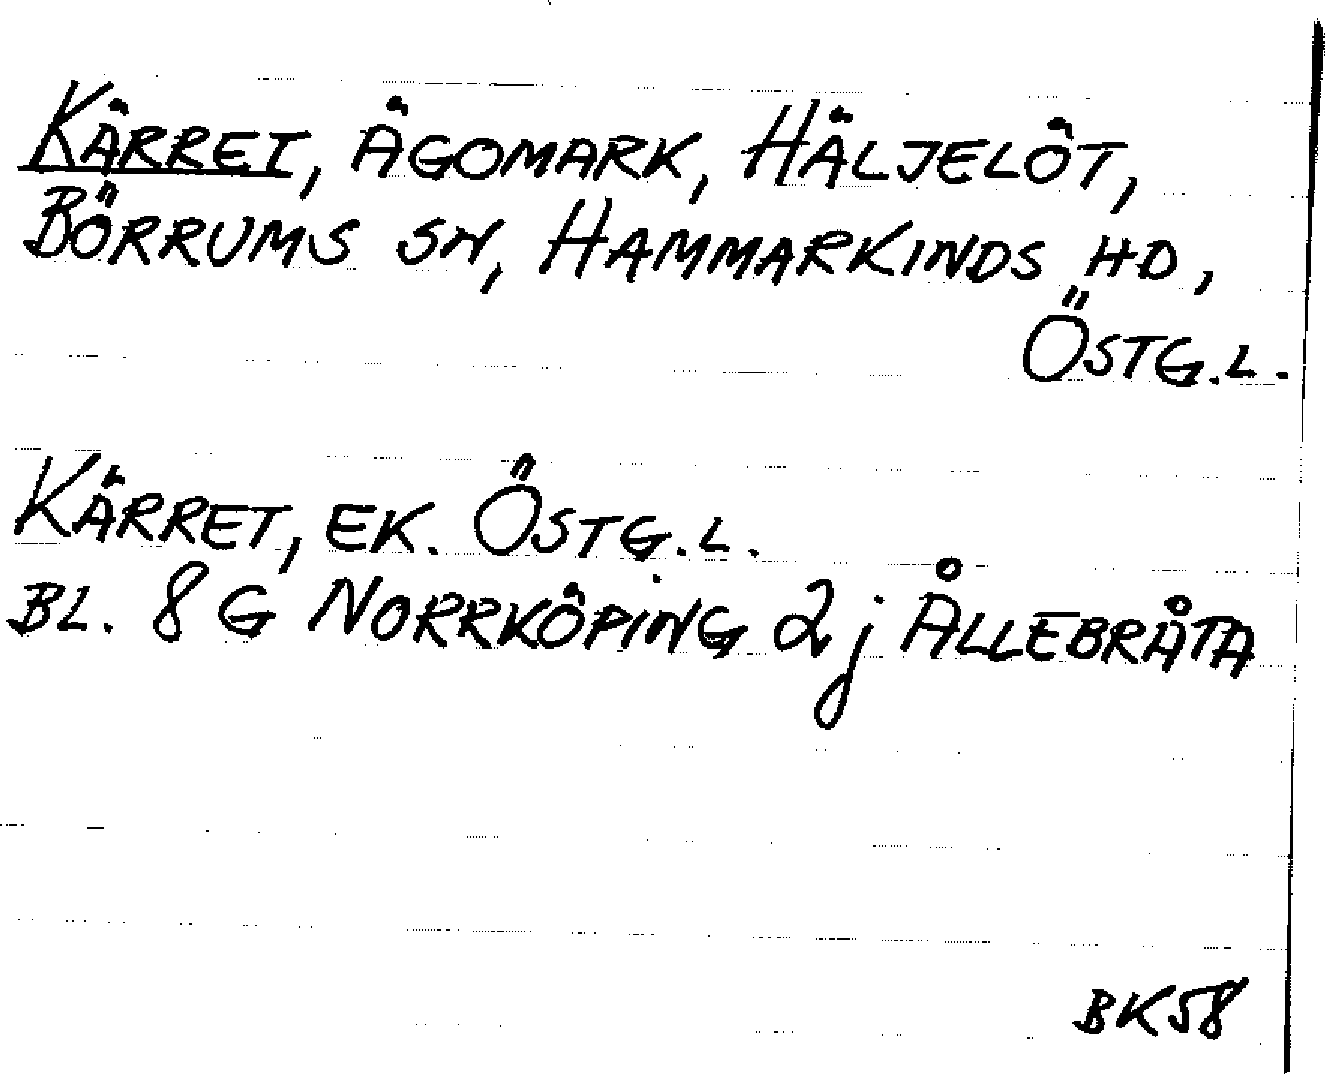 KÄRRET, ÄGOMARK, HÄLJELÖT,
BÖRRUMS SN, HAMMARKINDS HD,
ÖSTG.L.
KÄRRET, EK. ÖSTG.L.
BL. 8 G NORRKÖPING 2j ÅLLEBRÅTA
BK58